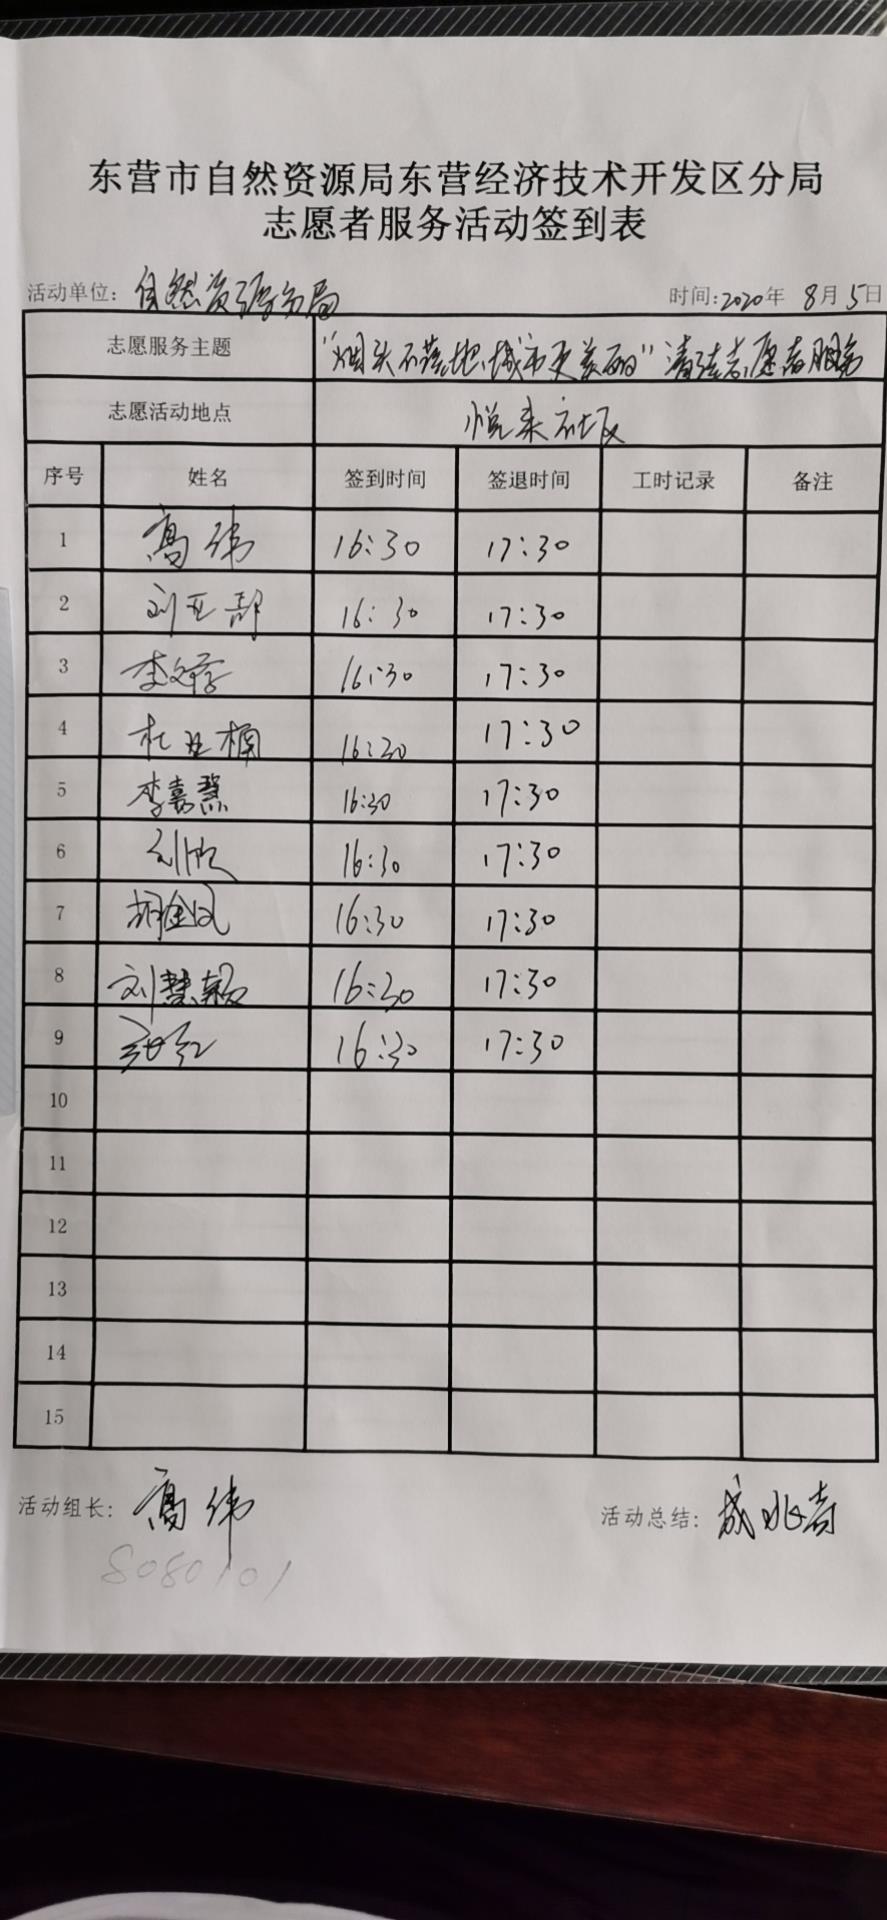 东营市自然资源局东营经济技术开发区分局
志愿者服务活动签到表
活动单位：自然资源分局 时间：2020年 8月5日
志愿服务主题 "烟头不落地，城市更美丽"清洁志愿者服务
志愿活动地点 悦来社区
序号 姓名 签到时间 签退时间 工时记录 备注
1 高伟 16:30 17:30
2 刘亚 16:30 17:30
3 李文 16:30 17:30
4 杜亚楠 16:30 17:30
5 李嘉慧 16:30 17:30
6 刘欣 16:30 17:30
7 胡金凤 16:30 17:30
8 刘慧颖 16:30 17:30
9 16:30 17:30
10
11
12
13
14
15
活动组长：高伟 活动总结：成兆奇
8080101